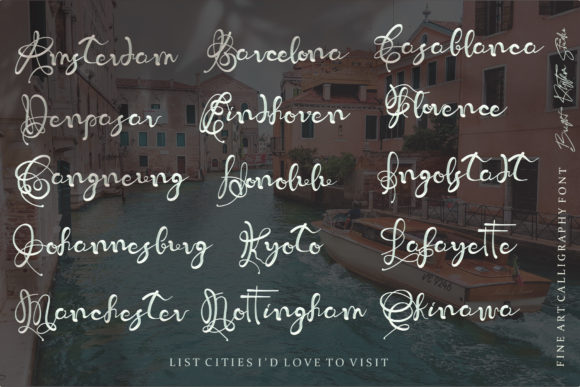 Amsterdam Barcelona Casablanca
Denpasar Eindhoven Florence
Gangneung Honolulu Ingolstadt
Johannesburg Kyoto Lafayette
Manchester Nottingham Okinawa
LIST CITIES I'D LOVE TO VISIT
Studio
FINE ART CALLIGRAPHY FONT